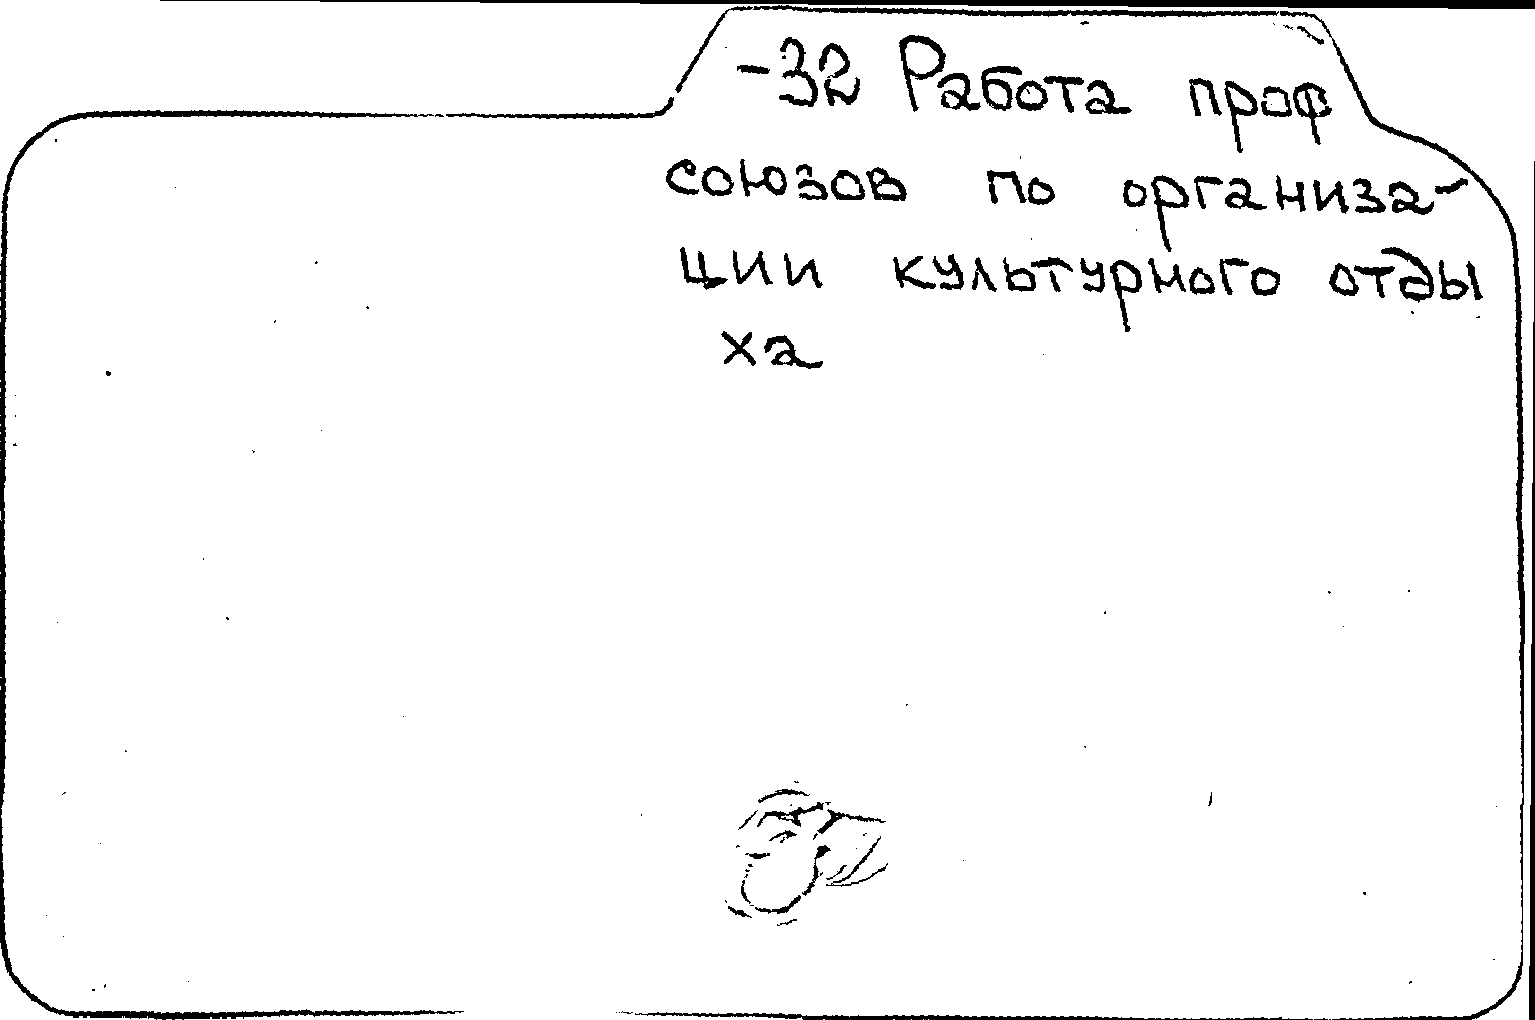 -32 Работа проф
союзов по организа-
ции культурного отды
ха